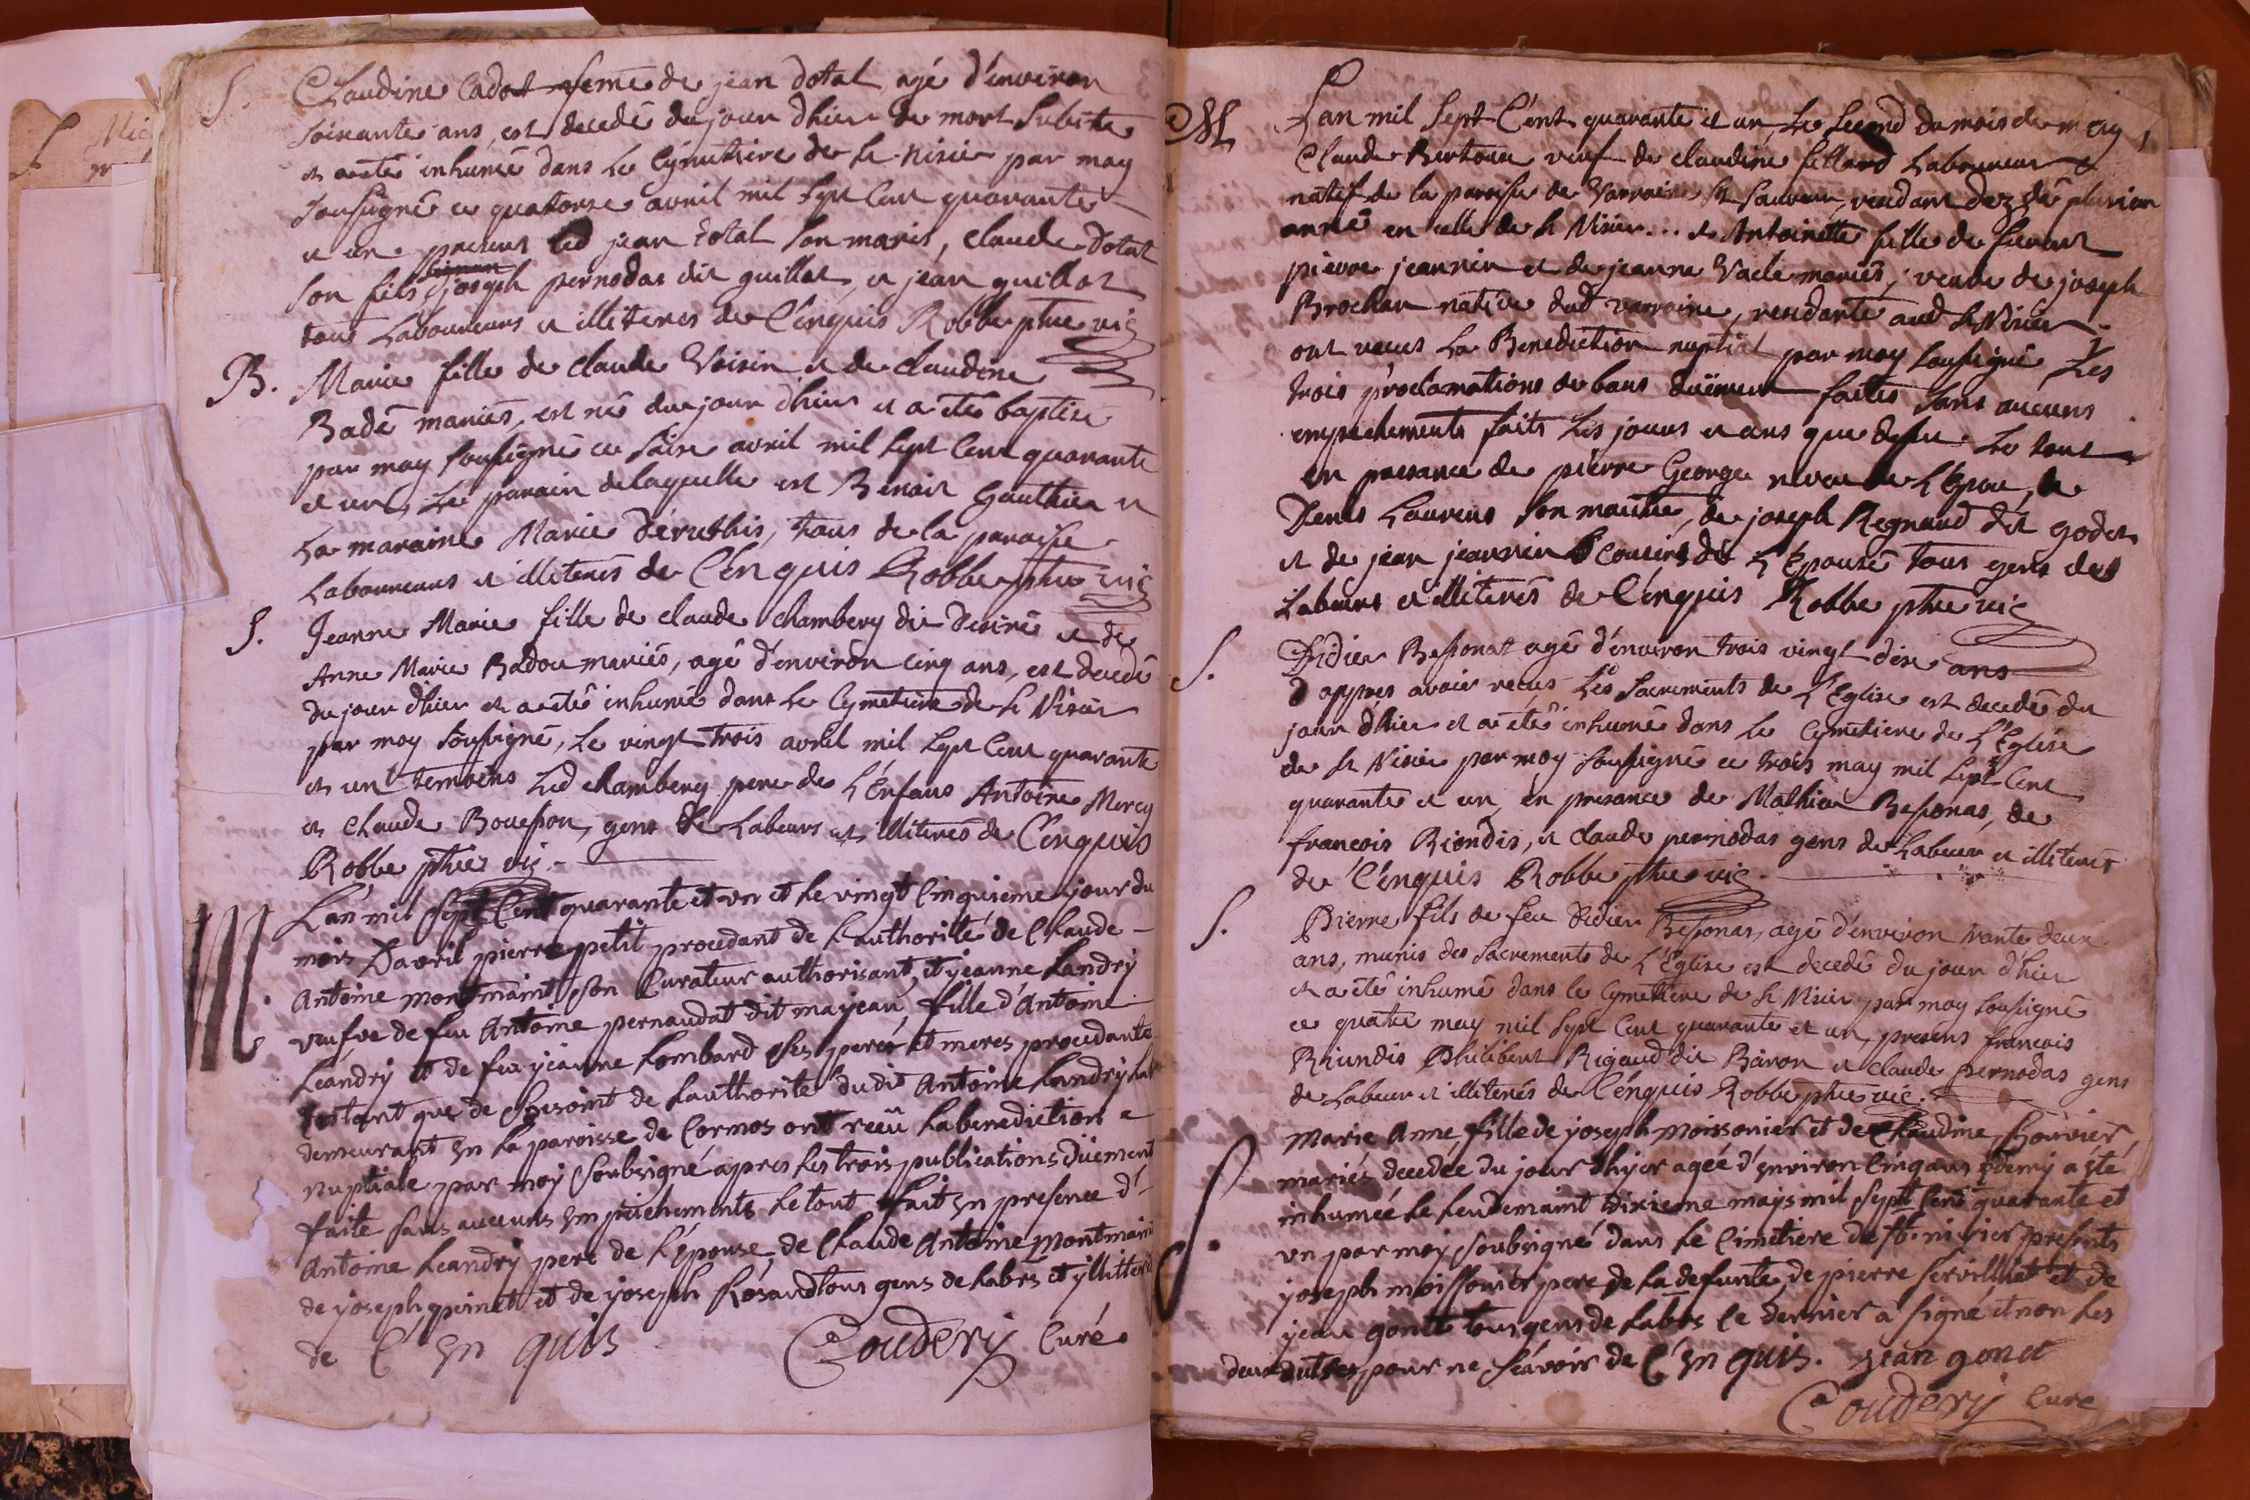 S. Claudine Cadot feme de jean dotal agé d'environ
soisante ans, est decedé du jour d'hier de mort subitte
et a été inhumée dans le Cÿmetiere de st nisier par moy
sousigné ce quatorze avril mil sept cent quarante
et un presens led jean dotal son maris, claude dotal
son fils joseph pernodas dit guillot, et jean guillot
tous Laboureurs et illiteres de C'enquis Robbe ptre vic
B. Marie fille de claude Voisin et de claudine
Badé mariés, est née du jour d'hier et a été baptisé
par moy sousigné ce saise avril mil sept cent quarante
et un, le parain de laquelle est Benoit Gauthier et
la maraine Marie déruthis, tous de la paroisse
Laboureurs et illiterés de C'enquis Robbe ptre vic
S. Jeanne Marie fille de claude chambery dit desiré et de
Anne Marie Badou mariés, agé d'environ cinq ans, est decedé
du jour d'hier et a été inhumé dans le Cymetiere de st Nisier
par moy sousigné, le vingt trois avril mil sept cent quarante
et un temoins led chambery pere de l'Enfans Antoine Mercy
et claude Bouesson, gens de Labeurs et illiterés de C'enquis
Robbe ptre vic.
M. L'an mil sept Cent quarante et un et le vingt Cinquieme jour du
mois D'avril pierre petit procedant de l'authorité de Claude
Antoine montmaint son Curateur authorisant, et jeanne Landry
veufve de feu Antoine pernaudat dit mayean, fille d'Antoine
Leandry et de feu yeanne Lombard ses peres et meres procedante
tant que de besoint de lauthorité dudit Antoine Landry
demeurant En la paroisse de Cormos ont reçû la benediction
nuptiale par moy soubsigné apres les trois publications düement
faite sans aucuns Empechements le tout fait En presence d'
Antoine Leandry pere de L'épouse, de Claude Antoine Montmain
de yoseph guinet et de yoseph Rosand tous gens de Labrs et yllitteré
de C'En quis Couderij Curé
M L'an mil sept Cent quarante et un, le second du mois de may
Claude Bertoux veuf de claudine fillard Laboureur
natif de la paroisse de Varraine st Sauveur, residant dez dé plusieur
anné en celle de st Nisier... et Antoinette fille de fueront
pierre jeannin et de jeanne Vacle mariés, veuve de joseph
Brochan native dud varraine, residante aud st Nisier
ont reçus la Benediction nuptial par moy sousigné Les
trois proclamations de bans düement faites sans aucuns
empechements faits les jours et ans que dessu. Le tout
en presance de pierre George neveu de L'Epou, de
Denis Laurens son maitre, de joseph Regnaud dit godet
et de jean jeannin Cousins de L'Epousé tous gens de
Labeurs et illiterés de C'enquis Robbe ptre vic
S. Didier Bessonat agé d'environ trois vingt dix ans
d'appres avoir recus Les Sacrements de L'Eglise est decedé du
jour d'hier et a été inhumé dans le Cymetiere de L'Eglise
de st Nisier par moy sousigné ce trois may mil sept Cent
quarante et un, en presance de Mathieu Bessonas, de
francois Riondis, et claude pernodas gens de Labeur et illiterés
de C'enquis Robbe ptre vic.
S. Pierre fils de feu Didier Bessonas, agé d'environ trante deux
ans, munis des Sacrements de L'Eglise est decedé du jour d'hier
et a été inhumé dans le Cymetiere de st Nisier par moy sousigné
ce quatre may mil sept Cent quarante et un, presens francois
Riundis Philibert Rigaud dit Baron et claude pernodas gens
de Labeur et illiterés de C'enquis Robbe ptre vic.
S. Marie Anne fille de yoseph moissonier et de Claudine,
mariés decedée du jour d'hyer agée d'Environ Cinq ans & demy a Eté
inhumée le Lendemaint dixieme mays mil sept Cent quarante et
un par moy soubsigné dans le Cimetiere de St. nizier presents
yoseph moissonier pere de la defunte, de pierre et de
yean gonet tous gens de Labrs le dernier a signé et non les
deux autres pour ne sçavoir de C'En quis. yean gonet
Couderij Curé